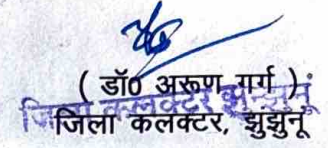 ( डॉ0 अरूण गर्ग )
जिला कलक्टर झुन्झुनूं
जिला कलक्टर, झुझुनूं